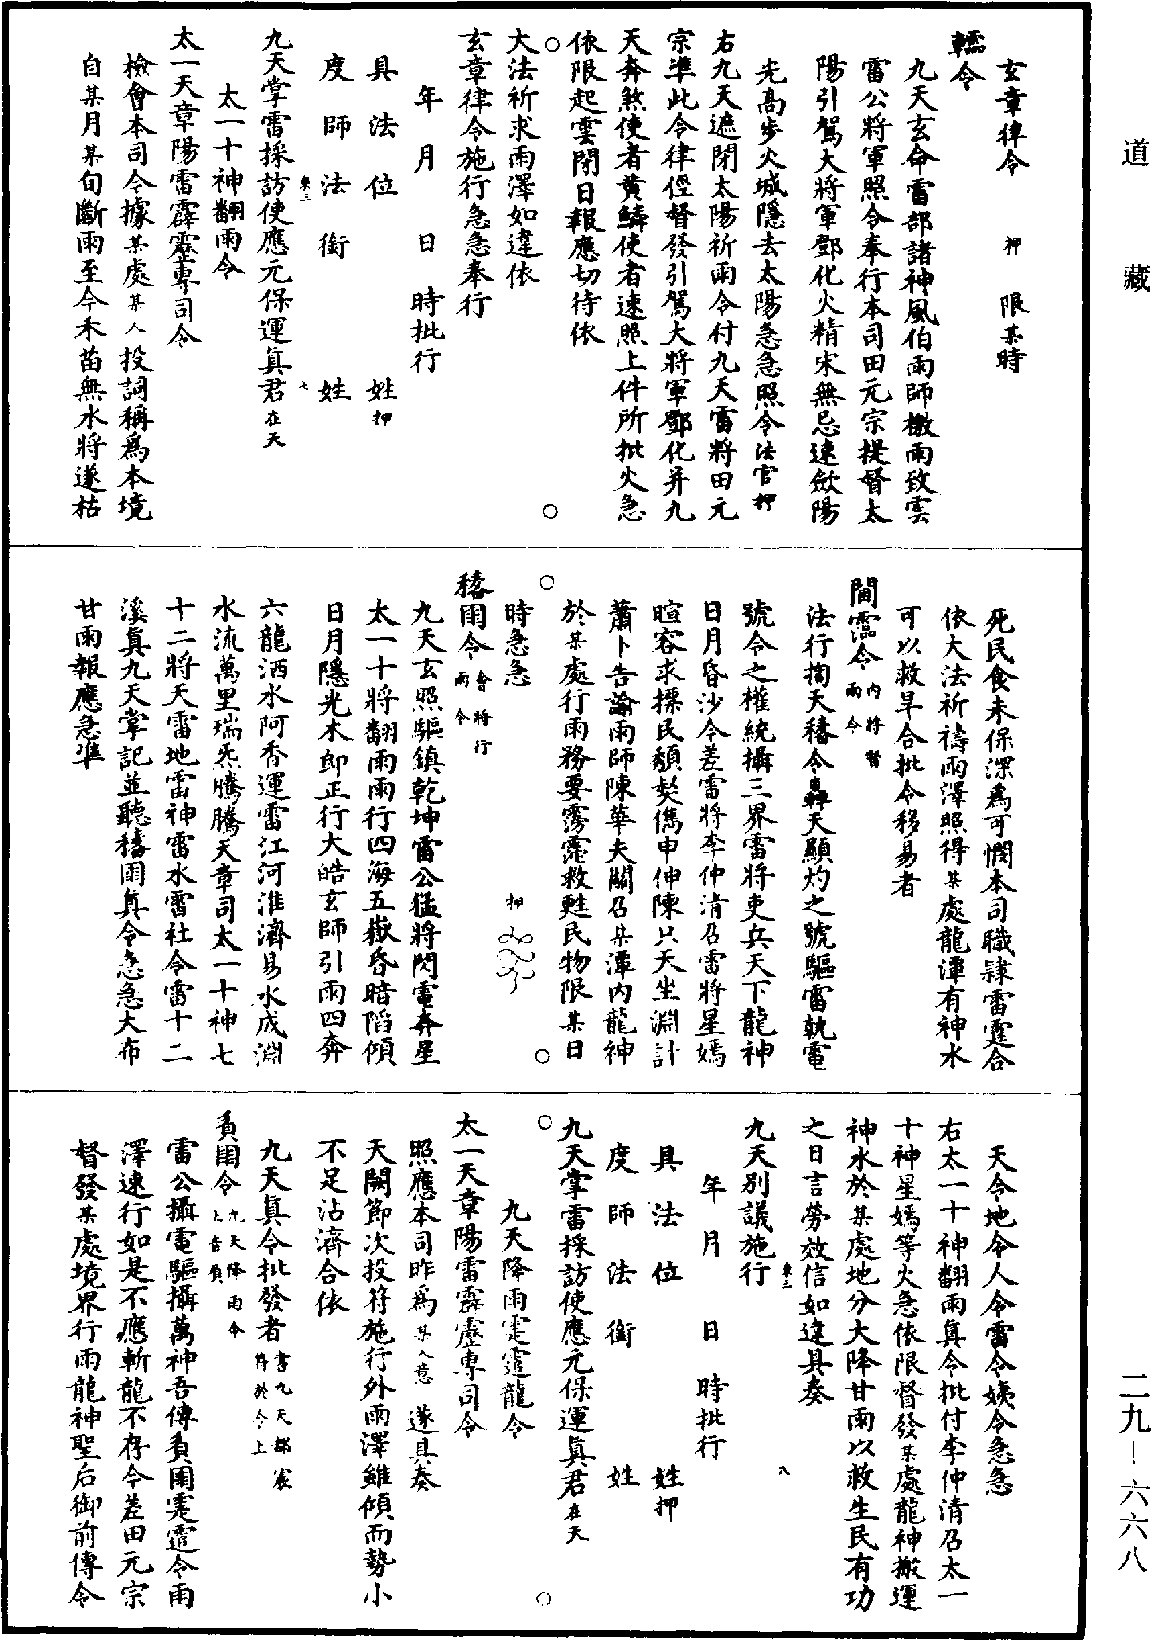 道藏
玄章律令 押 限某時
轄令
九天玄命雷部諸神風伯雨師撒雨致雲
雷公將軍照令奉行本司田元宗提督太
陽引駕大將軍鄧化火精宋無忌速斂陽
光高步火城隱去太陽急急照令法官押
右九天遮閉太陽祈雨令付九天雷將田元
宗準此令律侱督發引駕大將軍鄧化并九
天奔煞使者黃鱗使者速照上件所批火急
依限起雲閉日報應切待依
大法祈求雨澤如違依
玄章律令施行急急奉行
年月日時批行
具法位姓押
度師法銜姓
九天掌雷採訪使應元保運真君在天
太一十神翻雨令
太一天章陽雷霹靂專司令
檢會本司令據某處某人投詞稱爲本境
自某月某旬斷雨至今禾苗無水將遂枯
死民食未保深爲可憫本司職隸雷霆合
依大法祈禱雨澤照得某處龍潭有神水
可以救旱合批令移易者
法行摛天𥡴令轟天顯灼之號驅雷執電
號令之權統攝三界雷將吏兵天下龍神
日月昏沙令差雷將李仲清召雷將星嫣
暄容求摖民顙㷇儁申伸陳只天坐淵計
蕭卜告諭雨師陳華夫關召某潭内龍神
於某處行雨務要霶霈救甦民物限某日
時急急 押
九天玄照驅鎮乾坤雷公猛將閃電奔星
太一十將翻雨雨行四海五嶽昏暗滔傾
日月隱光木郎正行大皓玄師引雨四奔
六龍洒水阿香運雷江河淮濟易水成淵
水流萬里瑞炁騰騰天章司太一十神七
十二將天雷地雷神雷水雷社令雷十二
溪真九天掌記並聽𥡴雨真令急急大布
甘雨報應急準
天令地令人令雷令姨令急急
右太一十神翻雨真令批付李仲清召太一
十神星嫣等火急依限督發某處龍神搬運
神水於某處地分大降甘雨以救生民有功
之日言勞效信如違具奏
九天別議施行
年月日時批行
具法位姓押
度師法銜姓
九天掌雷採訪使應元保運真君在天
九天降雨霆𩆝龍令
太一天章陽雷霹靂專司令
照應本司昨爲某人意遂具奏
天闕節次投符施行外雨澤雖傾而勢小
不足沾濟合依
九天真令批發者
雷公攝電驅攝萬神吾傳負國霆𩆝令雨
澤速行如是不應斬龍不存令差田元宗
督發某處境界行雨龍神聖后御前傳令
二九—六六八